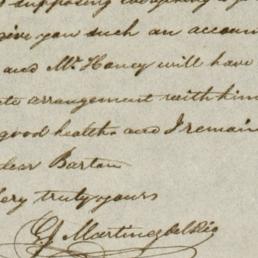 supposing everything
give you such an account
and Mr. Haney will have
arrangement with him
good health and I remain
dear Barton
Very truly yours